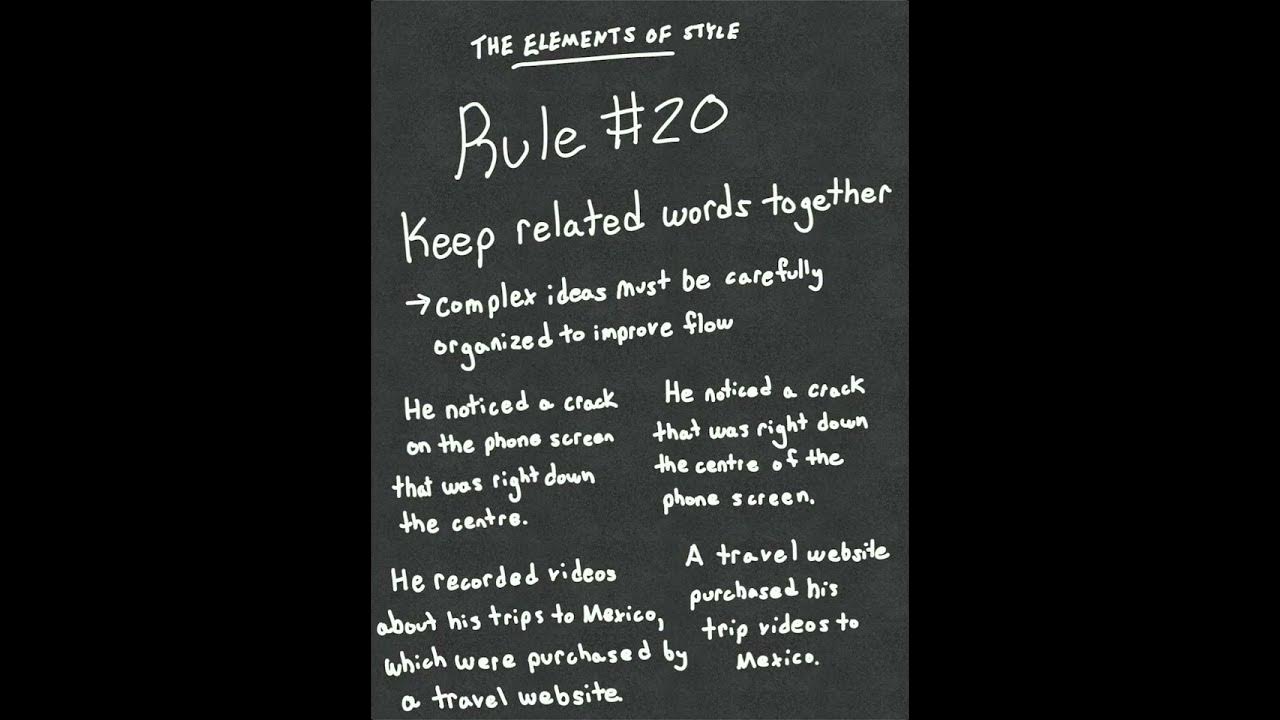 THE ELEMENTS OF STYLE
Rule #20
Keep related words together
→ complex ideas must be carefully
organized to improve flow
He noticed a crack
on the phone screen
that was right down
the centre.
He noticed a crack
that was right down
the centre of the
phone screen.
He recorded videos
about his trips to Mexico,
which were purchased by
a travel website.
A travel website
purchased his
trip videos to
Mexico.